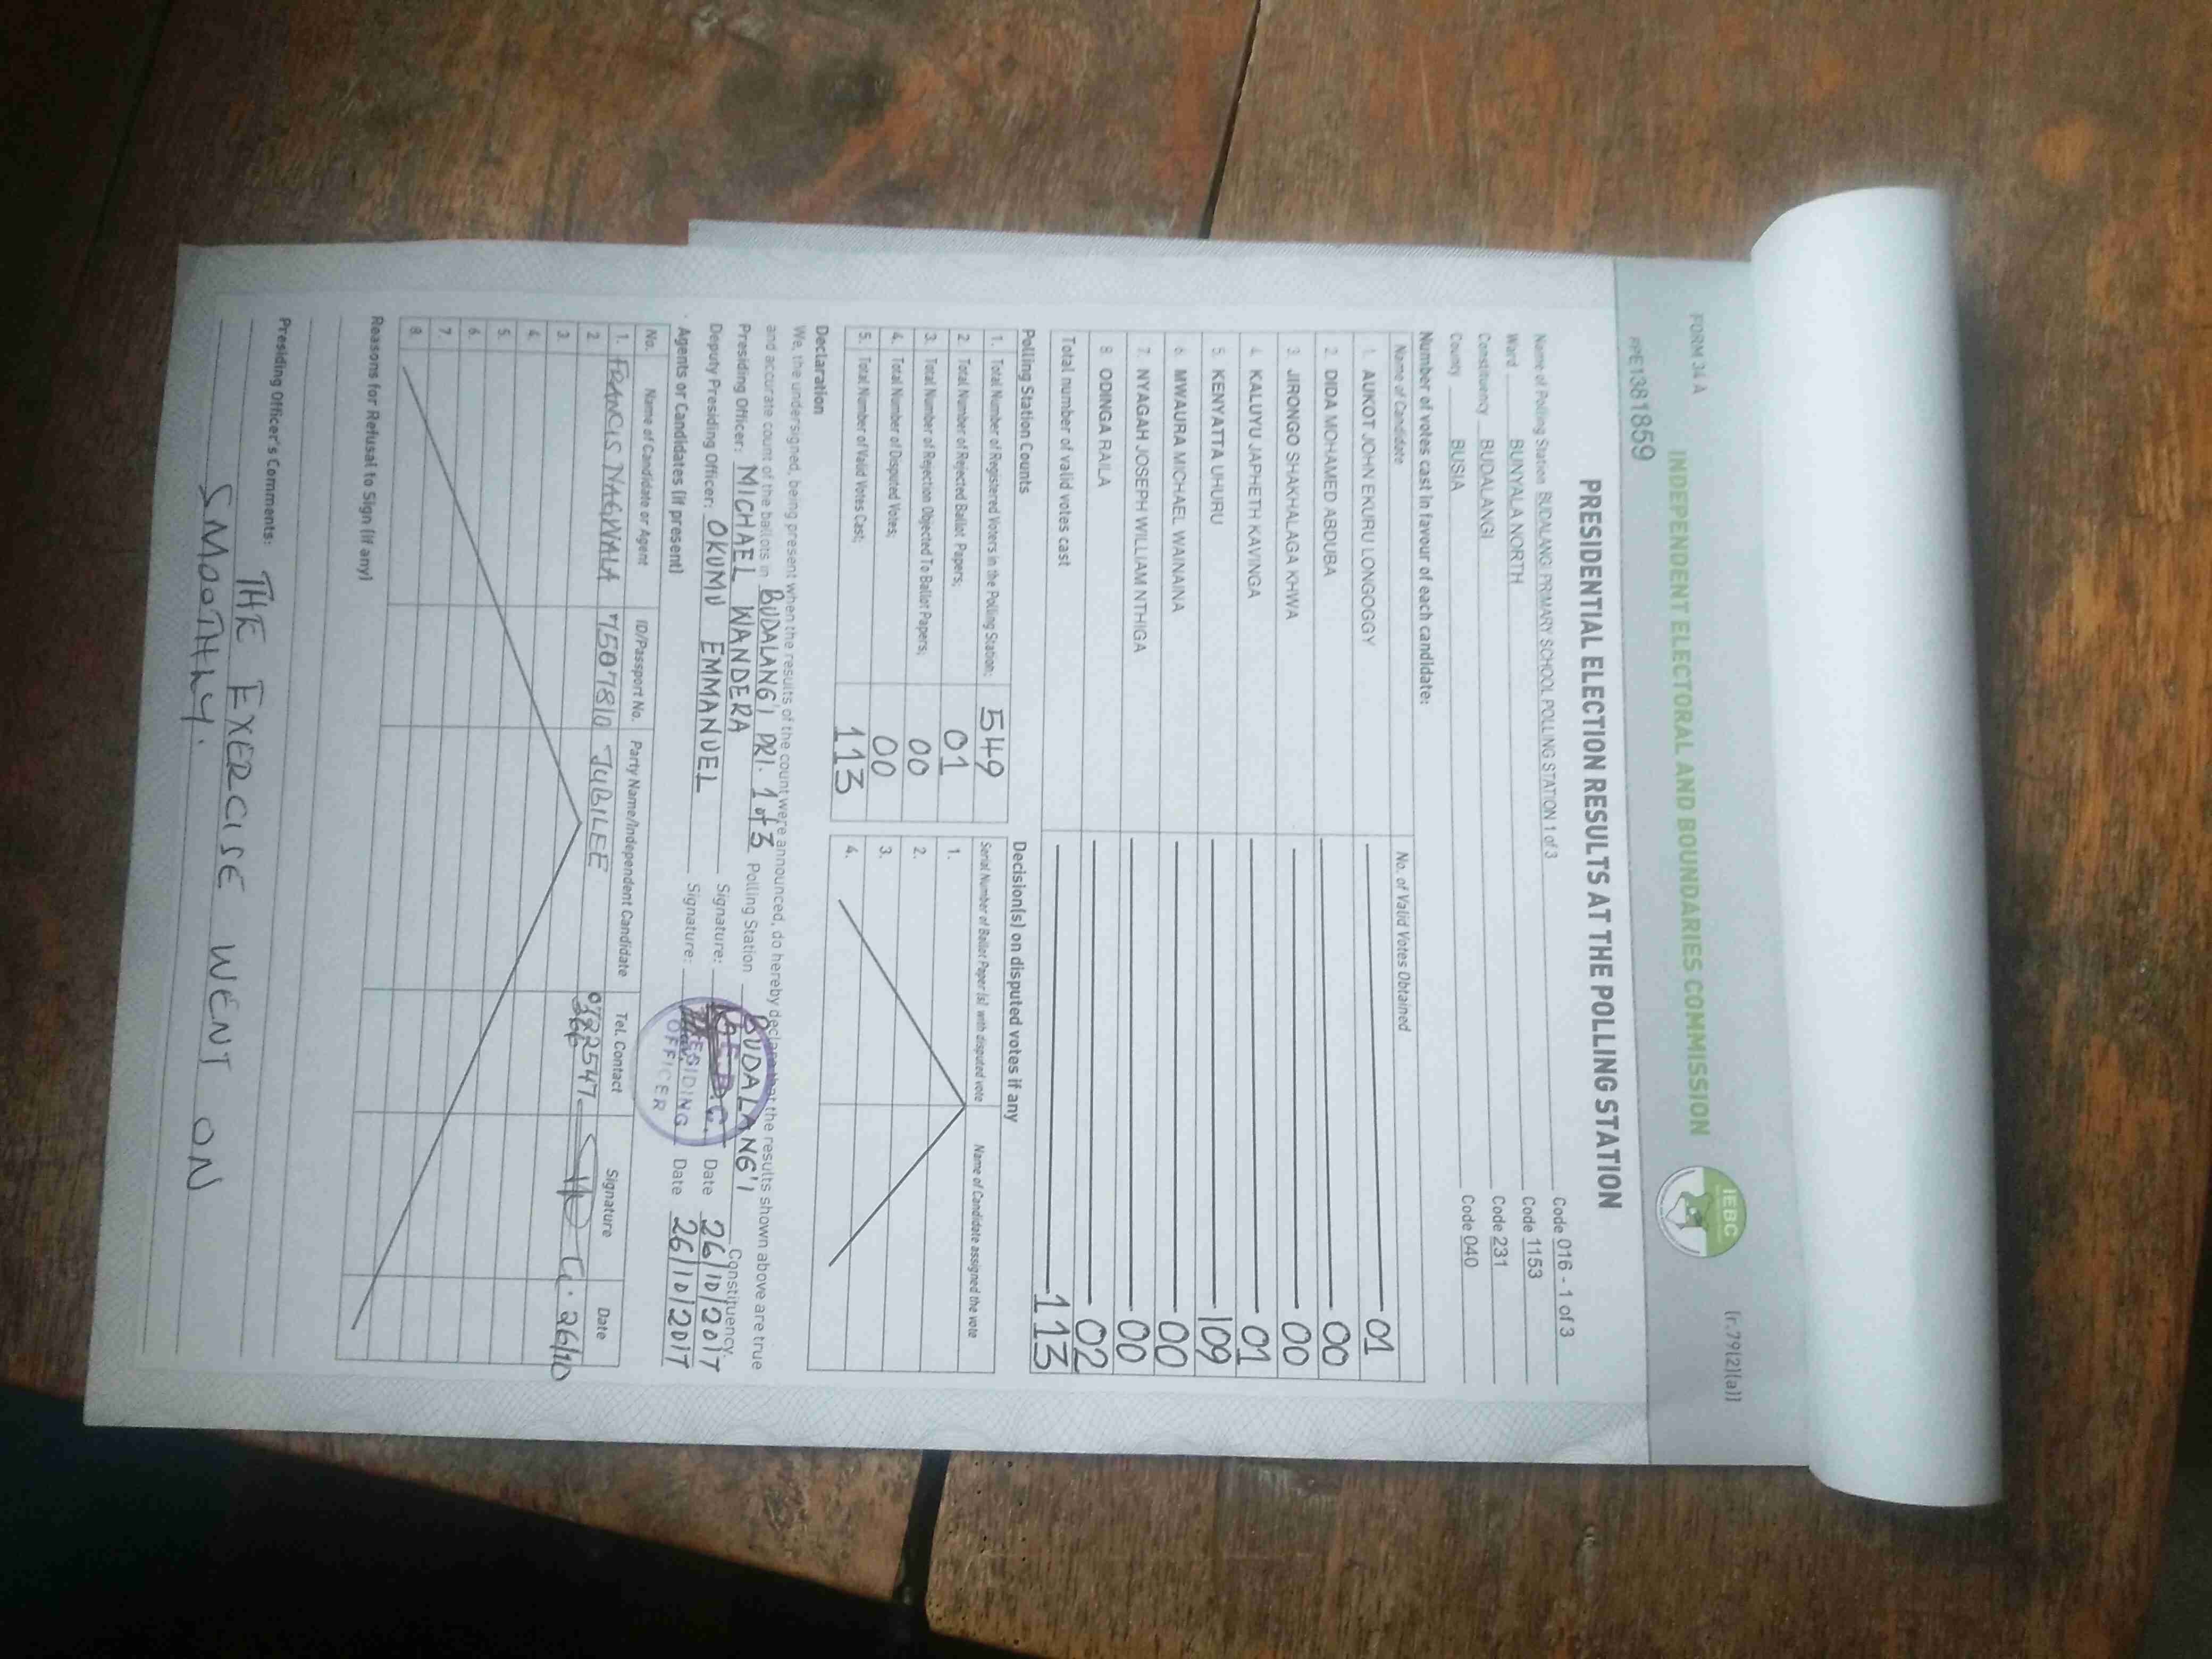 FORM 34 A
(r.79(2)(a))
INDEPENDENT ELECTORAL AND BOUNDARIES COMMISSION
IEBC
PPE1381859
PRESIDENTIAL ELECTION RESULTS AT THE POLLING STATION
Name of Polling Station BUDALANGI PRIMARY SCHOOL POLLING STATION 1 of 3 Code 016 - 1 of 3
Ward BUNYALA NORTH Code 1153
Constituency BUDALANGI Code 231
County BUSIA Code 040
Number of votes cast in favour of each candidate:
Name of Candidate No. of Valid Votes Obtained
1. AUKOT JOHN EKURU LONGOGGY 01
2. DIDA MOHAMED ABDUBA 00
3. JIRONGO SHAKHALAGA KHWA 00
4. KALUYU JAPHETH KAVINGA 01
5. KENYATTA UHURU 109
6. MWAURA MICHAEL WAINAINA 00
7. NYAGAH JOSEPH WILLIAM NTHIGA 00
8. ODINGA RAILA 02
Total number of valid votes cast 113
Polling Station Counts
1. Total Number of Registered Voters in the Polling Station; 549
2. Total Number of Rejected Ballot Papers; 01
3. Total Number of Rejection Objected To Ballot Papers; 00
4. Total Number of Disputed Votes; 00
5. Total Number of Valid Votes Cast; 113
Decision(s) on disputed votes if any
Serial Number of Ballot Paper (s) with disputed vote Name of Candidate assigned the vote
1.
2.
3.
4.
Declaration
We, the undersigned, being present when the results of the count were announced, do hereby declare that the results shown above are true
and accurate count of the ballots in BUDALANG'I PRI. 1 of 3 Polling Station BUDALANG'I Constituency.
Presiding Officer: MICHAEL WANDERA Signature: Date 26/10/2017
Deputy Presiding Officer: OKUMU EMMANUEL Signature: Date 26/10/2017
PRESIDING
OFFICER
Agents or Candidates (if present)
No. Name of Candidate or Agent ID/Passport No. Party Name/Independent Candidate Tel. Contact Signature Date
1. FRANCIS NAGWALA 7507810 JUBILEE 0722547 26/10
2.
3.
4.
5.
6.
7.
8.
Reasons for Refusal to Sign (if any)
Presiding Officer's Comments: THE EXERCISE WENT ON
SMOOTHLY.